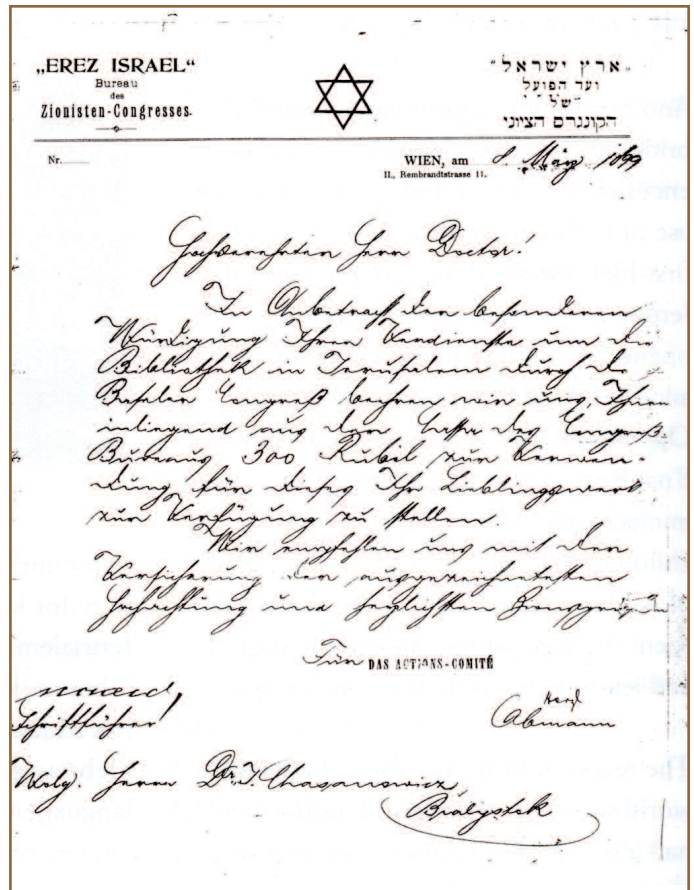 „EREZ ISRAEL“
Bureau
des
Zionisten-Congresses.
„ארץ ישראל“
ועד הפועל
של
הקונגרס הציוני
Nr.
WIEN, am 8 März 1899
II., Rembrandtstrasse 11.
Hochverehrten Herrn Doctor!
In Anbetracht der besonderen
Würdigung Ihrer Verdienste um die
Bibliothek in Jerusalem durch de
Baseler Congreß beehren wir uns, Ihnen
inliegend aus der Cassa des Congreß
Bureaus 300 Rubel zur Verwen
dung für dieses Ihr Lieblingswerk
zur Verfügung zu stellen.
Wir empfehlen uns mit der
Versicherung der ausgezeichnetesten
Hochachtung und herzlichsten Zionsgruß
Für DAS ACTIONS-COMITÉ
Schriftführer
Wolg. Herrn Dr. J. Chasanowicz,
Bialystok